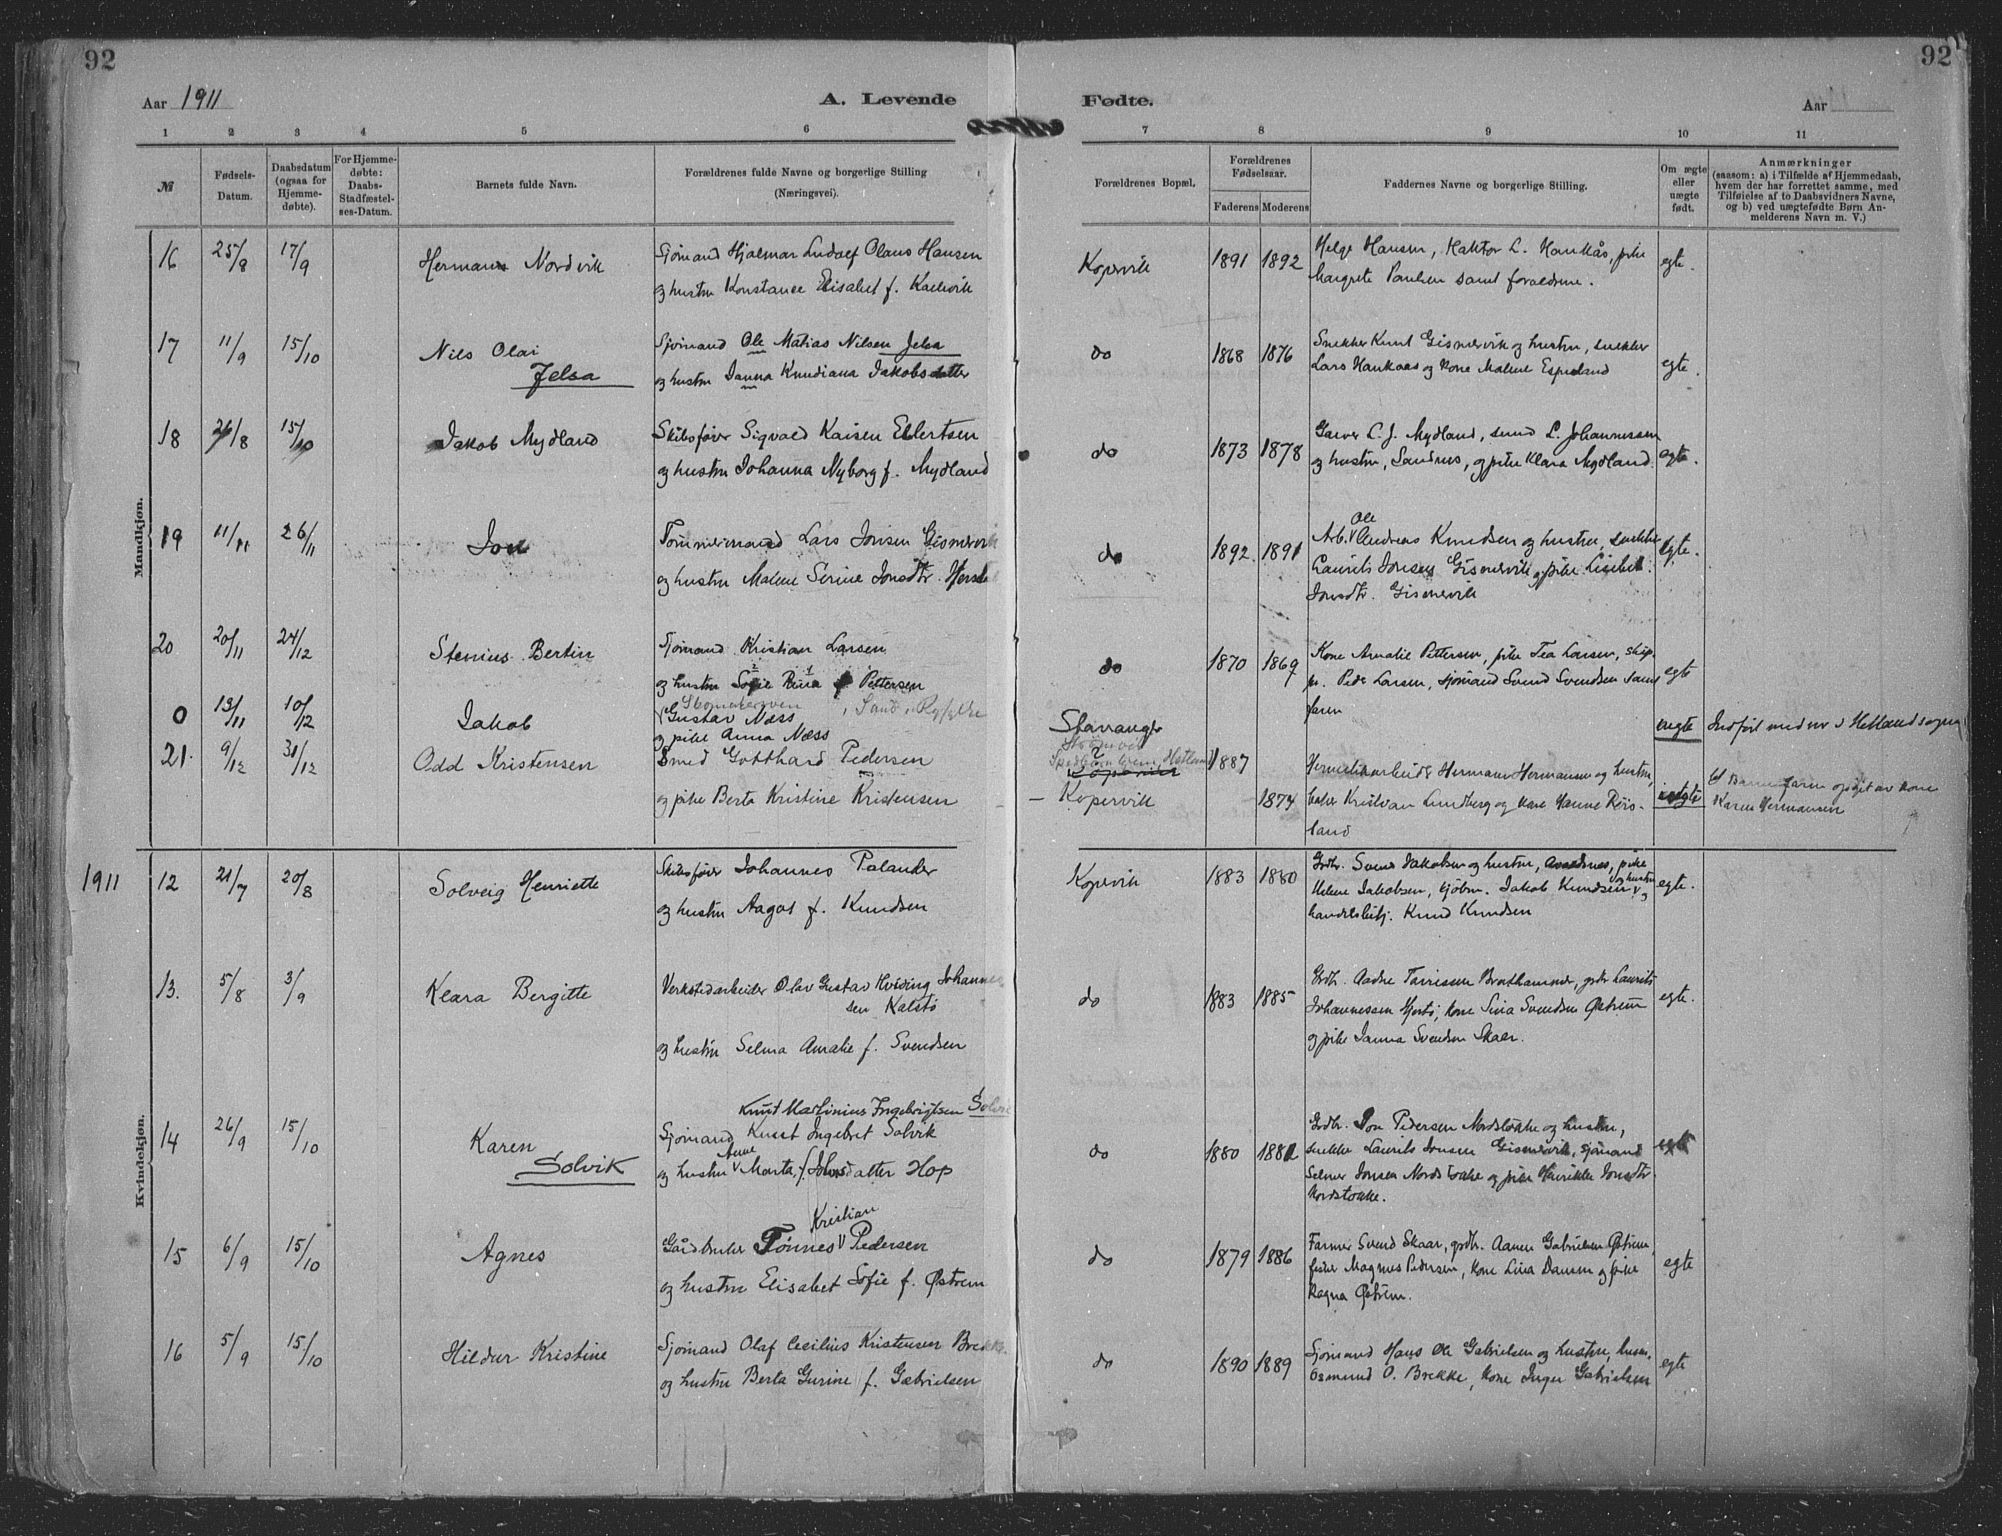 92
92
Aar 1911
A. Levende
Fødte.
Aar
1 2 3 4 5 6 7 8 9 10 11
№
Fødsels-
Datum.
Daabsdatum
(ogsaa for
Hjemme-
døbte).
For Hjemme-
døbte:
Daabs-
Stadfæstel-
ses-Datum.
Barnets fulde Navn.
Forældrenes fulde Navne og borgerlige Stilling
(Næringsvei).
Forældrenes Bopæl.
Forældrenes
Fødselsaar.
Faderens Moderens
Faddernes Navne og borgerlige Stilling.
Om ægte
eller
uægte
født.
Anmærkninger
(saasom: a) i Tilfælde af Hjemmedaab,
hvem der har forrettet samme, med
Tilføielse af to Daabsvidners Navne,
og b) ved uægtefødte Børn An-
melderens Navn m. V.)
Mandkjøn.
16 25/8 17/9 Herman Nordvik
Sjømand Hjalmar Ludolf Olaus Hansen
og hustru Konstance Elisabet f. Kallevik
Kopervik 1891 1892
Helge Hansen, L. Haukås, pike
Margrete Paulsen samt forældrene.
egte.
17 11/9 15/10 Nils Olai
Jelsa
Sjømand Ole Matias Nilsen Jelsa
og hustru Janna Knudiana Jakobsdatter
do 1868 1876
Snekker Knut Gismervik og hustru, snekker
Lars Haukaas og kone Malene Espeland
egte.
18 15/10 Jakob Mydland
Skibsfører Sigvald Kaisen Ellertsen
og hustru Johanna Nyborg f. Mydland
do 1873 1878
Garver L. J. Mydland, smed L. Johannessen
og hustru, Sandnes, og pike Klara Mydland.
egte.
19 11/11 26/11 Jon
Tømmermand Lars Jonsen Gismervik
og hustru Malene Serine Jonsdtr.
do 1892. 1891
Ole
Arb. Andreas Knudsen og hustru, snekker
Laurits Jonsen Gismervik og pike Lisebet
Jonsdtr. Gismervik
egte.
20 20/11 24/12 Stenius Bertin
Sjømand Kristian Larsen
og hustru Sofie Rina f Pettersen
do 1870 1869
Kone Amalie Pettersen, pike Tea Larsen, skip.
Peder Larsen, sjømand Svend Svendsen samt
faren
egte
0 13/11 10/12 Jakob
Gustav Næss, Sand, Ryfylke
og pike Anna Næss
Stavanger
uegte
Indført med nr i Hetland sogn
21. 9/12 31/12 Odd Kristensen
Smed Gotthard Pedersen
og pike Berta Kristine Kristensen
Kopervik
- Kopervik 1887
1874
Hermetikarbeider Herman Hermansen og hustru,
Kristian Lundberg og kone Hanne Røis-
land
uegte
Barnefaren opgit av kone
Karen Hermansen
Kvindekjøn.
1911
12 21/7 20/8 Solveig Henriette
Skibsfører Johannes Palander
og hustru Aagot f. Knudsen
Kopervik 1883 1880
Grdbr. Svend Jakobsen og hustru, pike
Helene Jakobsen, kjøbm. Jakob Knudsen og hustru og
handelsbetj. Knud Knudsen
egte.
13. 5/8 3/9 Klara Bergitte
Verkstedarbeider Olav Gustav Hviding Johannes
sen Kalstø
og hustru Selma Amalie f. Svendsen
do 1883 1885
Grdbr. Aadne Tarrissen Bratthammer, grdbr Laurits
Johannessen Hjertø, kone Sina Svendsen Østrem
og pike Janna Svendsen Skaar.
egte.
14 26/9 15/10 Karen
Solvik
Knut Martinius Ingebrigtsen Solvik
Sjømand Knut Ingebret Solvik
Anne
og hustru Marta f. Johnsdatter Hop
do 1880
Grdbr. Jon Pedersen Nordstokke og hustru,
snekker Laurits Jonsen Gismervik, sjømand
Selmer Jonsen Nordstokke og pike Henrikke Jonsdtr.
Nordstokke.
egte
15 6/9 15/10 Agnes
Kristian
Gårdbruker Tønnes Pedersen
og hustru Elisabet Sofie f. Østrem
do 1879 1886
Farmer Svend Skaar, grdbr. Aanen Gabrielsen Østrem,
fisker Magnus Pedersen, kone Lina Dansen og pike
Ragna Østrem.
egte
16 5/9 15/10 Hildur Kristine
Sjømand Olaf Cecilius Kristensen Brekke
og hustru Berta Gurine f. Gabrielsen
do 1890 1889
Sjømand Hans Ole Gabrielsen og hustru, husm.
Osmund O. Brekke, kone Inger Gabrielsen
egte